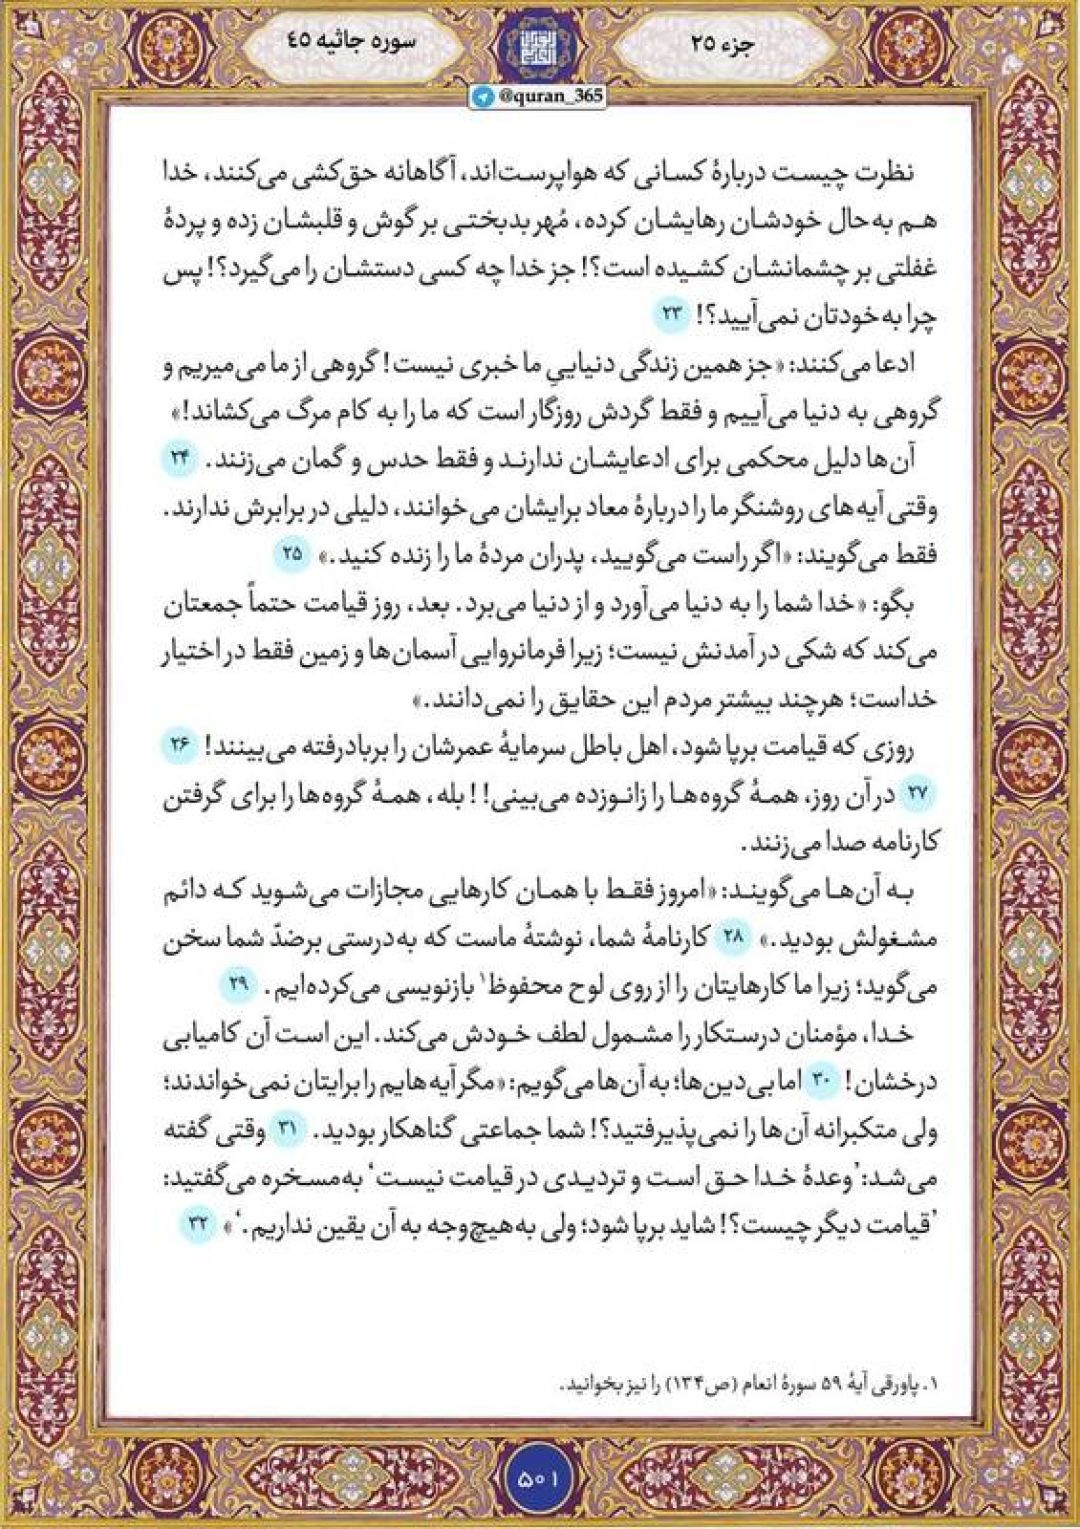 جزء ۲۵
سوره جاثیه ۴۵
@quran_365
نظرت چیست دربارهٔ کسانی که هواپرست‌اند، آگاهانه حق‌کشی می‌کنند، خدا
هم به‌حال خودشان رهایشان کرده، مُهر بدبختی بر گوش و قلبشان زده و پردهٔ
غفلتی بر چشمانشان کشیده است؟! جز خدا چه کسی دستشان را می‌گیرد؟! پس
چرا به‌خودتان نمی‌آیید؟! ۲۳
ادعا می‌کنند: «جز همین زندگی دنیاییِ ما خبری نیست! گروهی از ما می‌میریم و
گروهی به دنیا می‌آییم و فقط گردش روزگار است که ما را به کام مرگ می‌کشاند!»
آن‌ها دلیل محکمی برای ادعایشان ندارند و فقط حدس و گمان می‌زنند. ۲۴
وقتی آیه‌های روشنگر ما را دربارهٔ معاد برایشان می‌خوانند، دلیلی در برابرش ندارند.
فقط می‌گویند: «اگر راست می‌گویید، پدران مردهٔ ما را زنده کنید.» ۲۵
بگو: «خدا شما را به دنیا می‌آورد و از دنیا می‌برد. بعد، روز قیامت حتماً جمعتان
می‌کند که شکی در آمدنش نیست؛ زیرا فرمانروایی آسمان‌ها و زمین فقط در اختیار
خداست؛ هرچند بیشتر مردم این حقایق را نمی‌دانند.»
روزی که قیامت برپا شود، اهل باطل سرمایهٔ عمرشان را بربادرفته می‌بینند! ۲۶
۲۷ در آن روز، همهٔ گروه‌ها را زانوزده می‌بینی!! بله، همهٔ گروه‌ها را برای گرفتن
کارنامه صدا می‌زنند.
به آن‌ها می‌گویند: «امروز فقط با همان کارهایی مجازات می‌شوید که دائم
مشغولش بودید.» ۲۸ کارنامهٔ شما، نوشتهٔ ماست که به‌درستی برضدّ شما سخن
می‌گوید؛ زیرا ما کارهایتان را از روی لوح محفوظ۱ بازنویسی می‌کرده‌ایم. ۲۹
خدا، مؤمنان درستکار را مشمول لطف خودش می‌کند. این است آن کامیابی
درخشان! ۳۰ اما بی‌دین‌ها؛ به آن‌ها می‌گویم: «مگر آیه‌هایم را برایتان نمی‌خواندند؛
ولی متکبرانه آن‌ها را نمی‌پذیرفتید؟! شما جماعتی گناهکار بودید. ۳۱ وقتی گفته
می‌شد: ’وعدهٔ خدا حق است و تردیدی در قیامت نیست‘ به‌مسخره می‌گفتید:
’قیامت دیگر چیست؟! شاید برپا شود؛ ولی به‌هیچ‌وجه به آن یقین نداریم.‘» ۳۲
۱. پاورقی آیهٔ ۵۹ سورهٔ انعام (ص۱۳۴) را نیز بخوانید.
۵۰۱